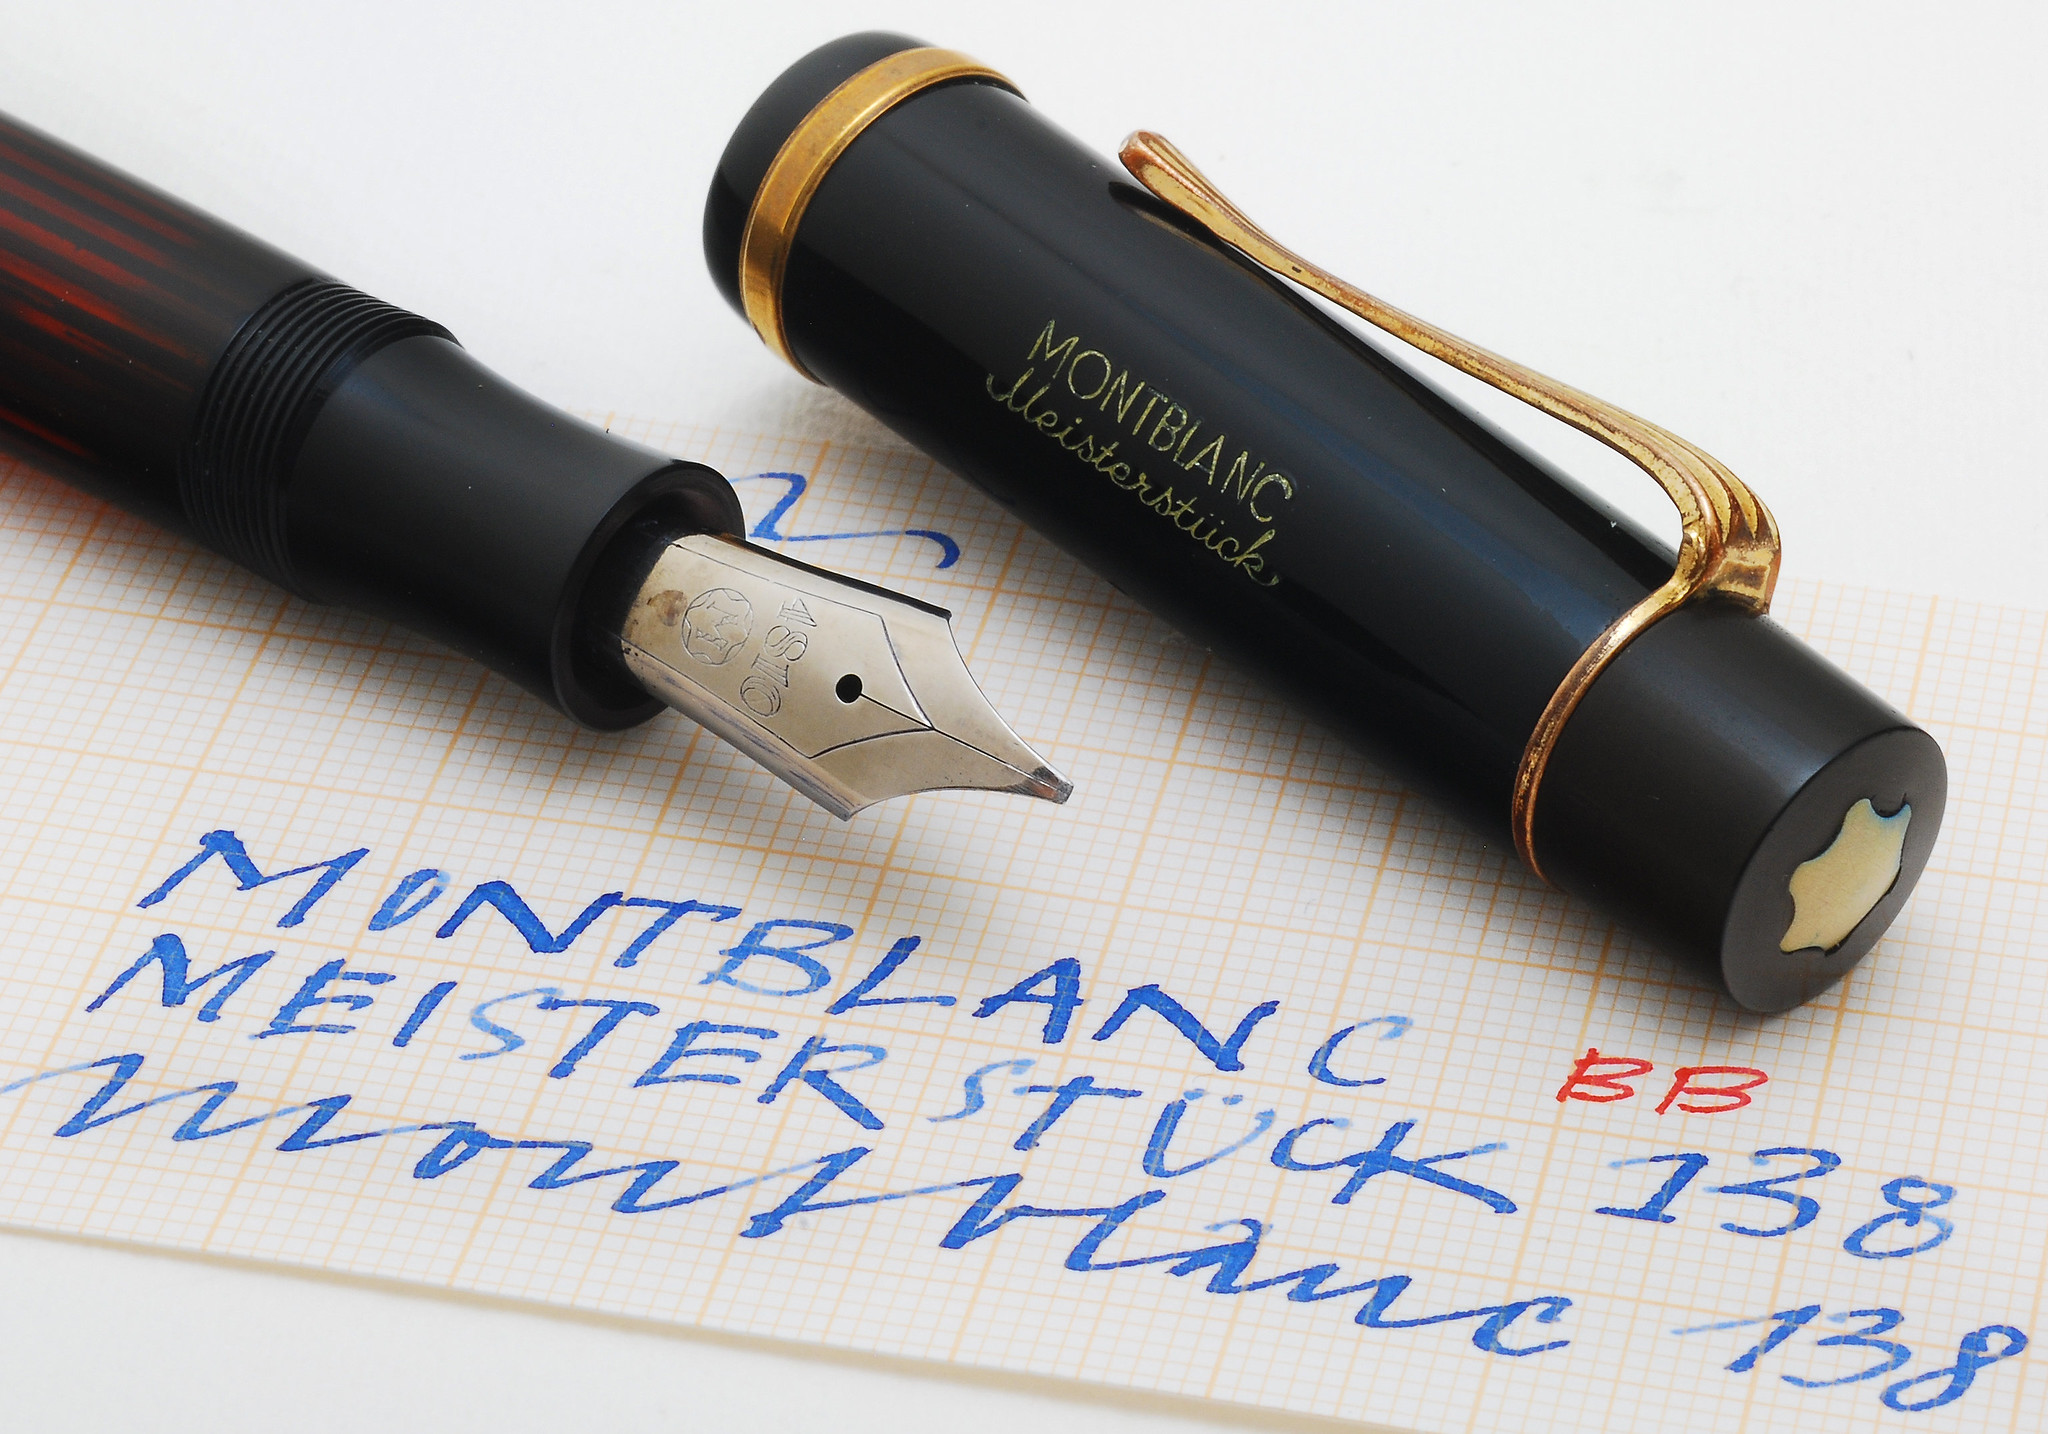 MONTBLANC
Meisterstück
4810
M
MONTBLANC
BB
MEISTERSTÜCK 138
montblanc 138